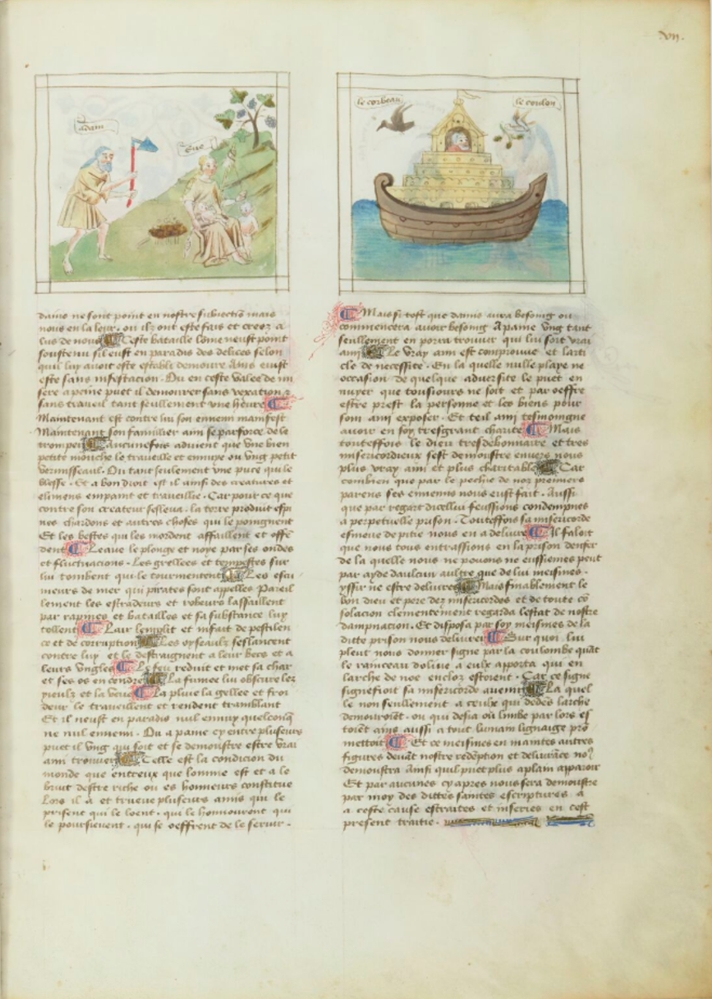 adam
eue
dains ne sont point en nostre subiection mais
nous en la leur . ou ilz ont este fais et creez a
lus de nous Ceste bataille lome neust point
soustenu sil eust en paradis des delices selon
quil luy auoit este estable demoure Ains eust
este sans infestation . Ou en ceste valee de mi
sere a peine puet il demourer sans vexation
sans traueil tant seullement vne heure
Maintenant est contre lui son ennemi manifest
Maintenant son familier ami se parforce de le
tromper Aucunefois aduient que vne bien
petite mouche le traueille et ennuye ou vng petit
vermisseaul . Ou tant seulement vne puce qui le
blesse . Et a bon droit est il ainsi des creatures et
elemens empaint et traueillie . Car pour ce que
contre son createur sesleua . la terre produit espi
nes chardons et autres choses qui le poingnent
Et les bestes qui les mordent assaillent et offe
dent Leaue le plonge et noye par ses ondes
et fluctuacions . Les gresles et tempestes sur
lui tombent qui le tourmentent Les escu
meurs de mer qui pirates sont appelles Pareil
lement les estradeurs et robeurs lassaillent
par rapines et batailles et sa substance luy
tollent Lair lemplit et infait de pestilen
ce et de corruption Les oyseaulx seslancent
contre luy et le destraignent a leur becs et a
leurs vngles Le feu reduit et met sa char
et ses os en cendre La fumee lui obscure les
yeulx et la veue La pluie la gellee et froi
deur le traueillent et rendent tramblant
Et il neust en paradis nul ennuy quelconq
ne nul ennemi . Ou a paine cy entre pluseurs
puet il vng qui soit et se demonstre estre vrai
ami trouuer Telle est la condicion du
monde que entreux que lomme est et a le
bruit destre riche ou es honneurs constitue
Lors il a et treuue plusieurs amis qui le
prisent qui le loent . qui le honnourent qui
le poursieuent . qui se oeffrent de le seruir .
le corbeau
le coulon
Mais si tost que dauis aura besoing ou
commencera auoir besoing A paine vng tant
seullement en porra trouuer qui lui soit vrai
ami Le vray ami est comprouue et larti
cle de necessite . En la quelle nulle playe ne
occasion de quelque aduersite le puet en
nuyer que tousiours ne soit et par oeffre
estre prest la personne et les biens pour
son ami exposer . Et teil ami tesmoingne
auoir en soy tresgrant charite Mais
touteffois le dieu tresdebonnaire et tres
misericordieux sest demonstre enuers nous
plus vray ami et plus charitable Car
combien que par le peche de noz premiers
parens ses ennemis nous eust fait . Aussi
que par regart dicellui feussions condempnes
a perpetuelle prison . Touteffois sa misericorde
esmeue de pitie nous en a deliure Il faloit
que nous tous entrassions en la prison denfer
de la quelle nous ne pouons ne eussiemes peut
par ayde daulcun aultre que de lui meismes .
yssir ne estre deliures Mais finablement le
bon dieu et pere dez misericordes et de toute co
solacion clementement regarda lestat de nostre
dampnation . Et disposa par soy meismes de la
ditte prison nous deliurer Sur quoi lui
pleut nous donner signe par la coulombe quat
le rainceau doliue a eulx apporta qui en
larche de noe enclos estoient . Car ce signe
signefioit sa misericorde auenir La quel
le non seullement a ceulx qui dedes larche
demouroient . ou qui desia ou limbe par lors es
toient ains aussi a tout lumain lignaige pro
mettoit Et ce meismes en maintes autres
figures deuat nostre redeption et deliurace no9
demonstra Ainsi quil puet plus a plain apparoir
Et par aucunes cy apres nous sera demonstre
par moy des dittes saintes escriptures a
a ceste cause estraites et inserees en cest
present traitie .